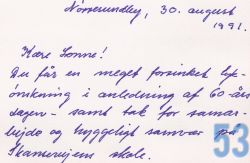 Nørresundby, 30. august
1991.
Kære Sonne!
Du får en meget forsinket lyk-
ønskning i anledning af 60-års
dagen - samt tak for samar-
bejde og hyggeligt samvær på
Skansevejens skole.
53